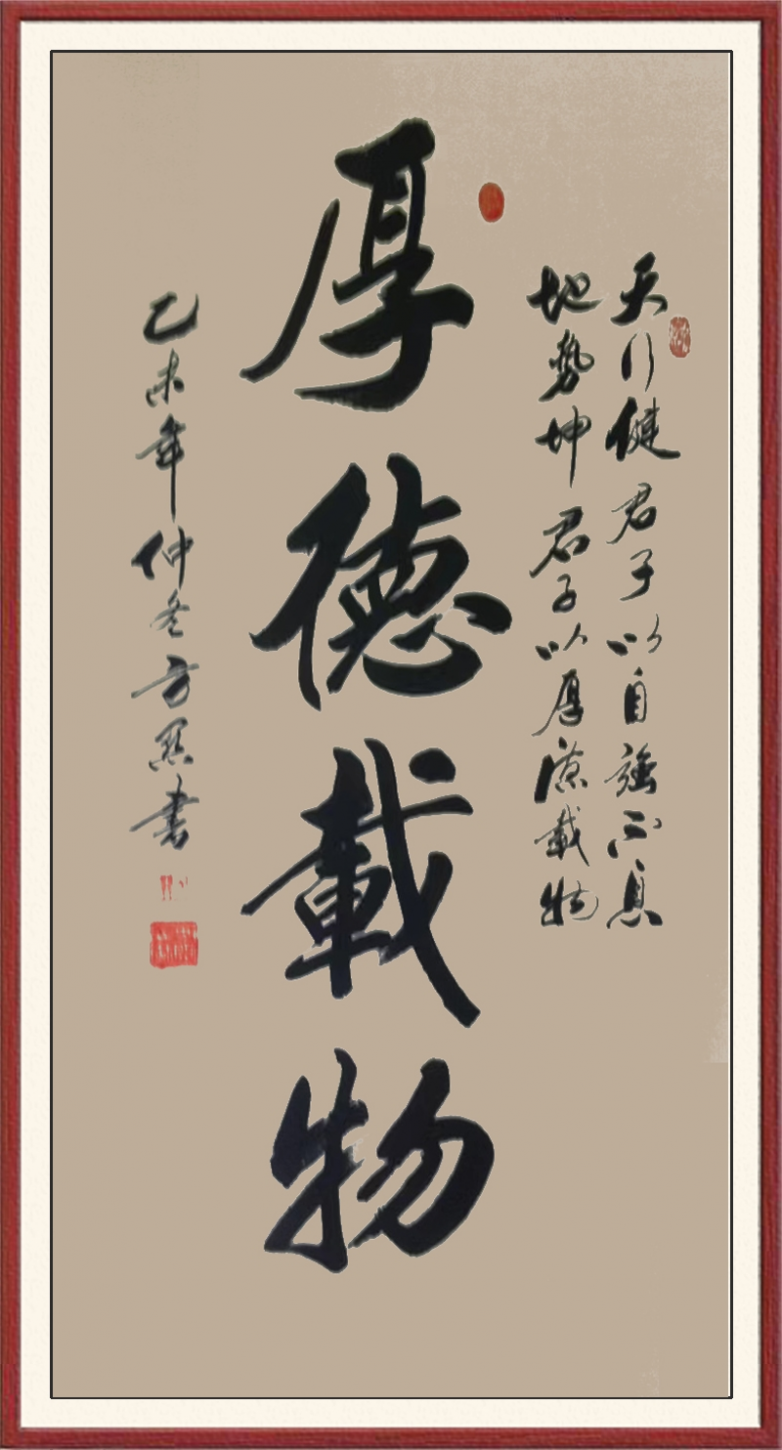 天行健君子以自強不息
地势坤君子以厚德载物
厚德載物
乙未年仲冬方**書